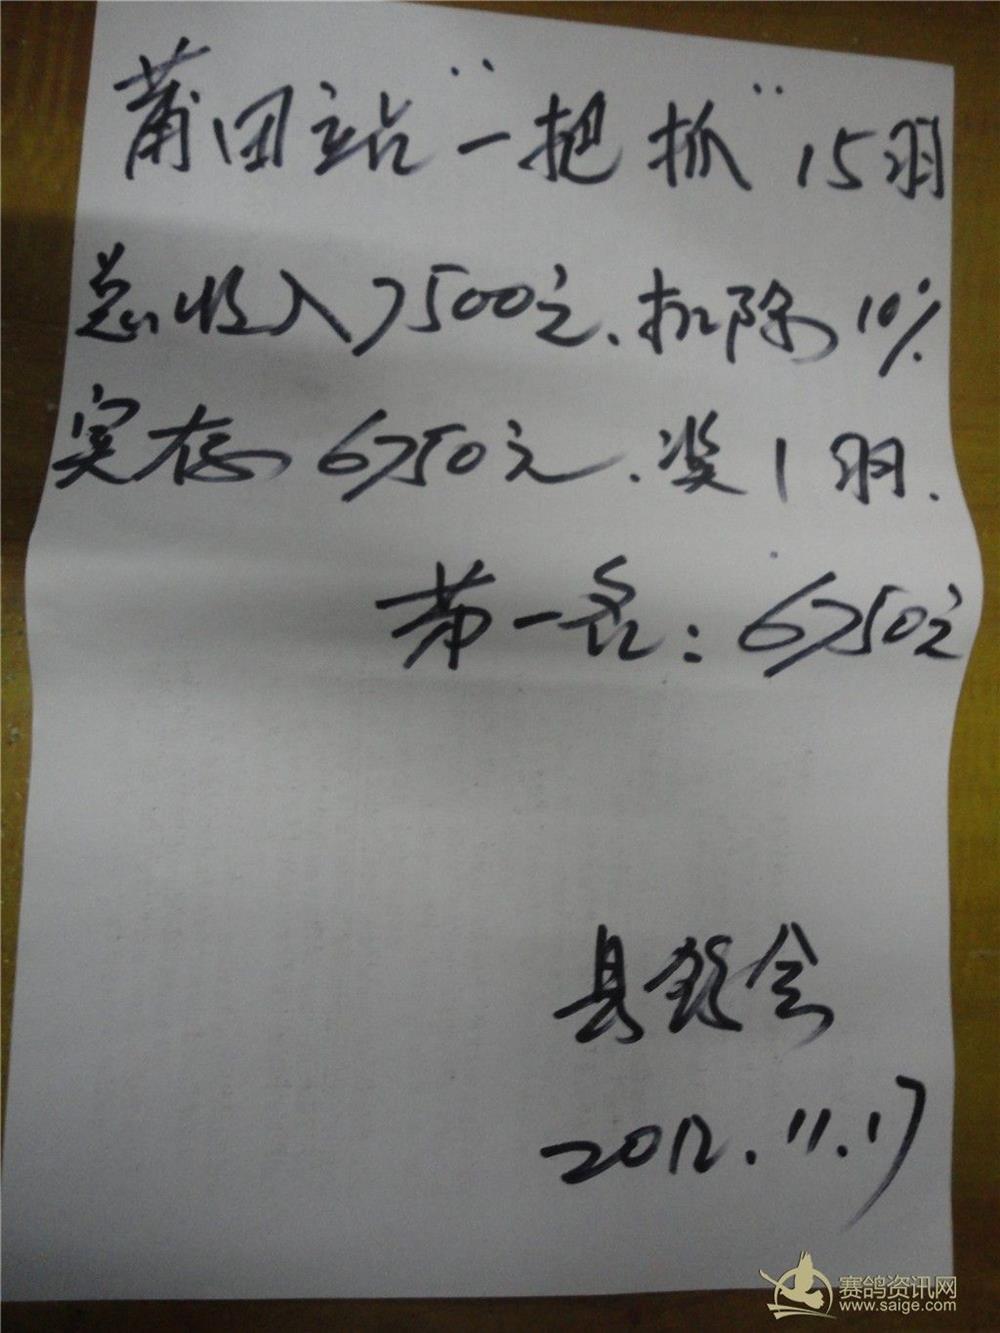 莆田站“一把抓”15羽
总收入7500元、扣除10%
实存6750元、奖1羽.
第一名：6750元
县鸽会
2012.11.17
赛鸽资讯网
www.saige.com